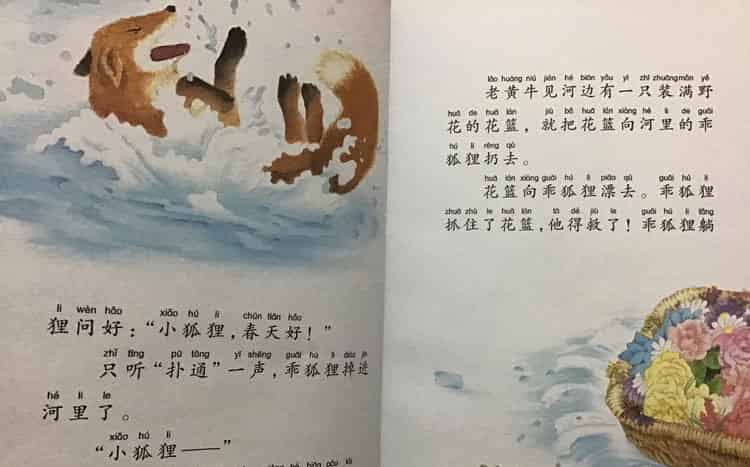 lí wèn hǎo xiǎo hú li chūn tiān hǎo
狸问好：“小狐狸，春天好！”
zhǐ tīng pū tōng yì shēng guāi hú li diào jìn
只听“扑通”一声，乖狐狸掉进
hé lǐ le
河里了。
xiǎo hú li
“小狐狸——”
lǎo huáng niú jiàn hé biān yǒu yì zhī zhuāng mǎn yě
老黄牛见河边有一只装满野
huā de huā lán jiù bǎ huā lán xiàng hé lǐ de guāi
花的花篮，就把花篮向河里的乖
hú li rēng qù
狐狸扔去。
huā lán xiàng guāi hú li piāo qù guāi hú li
花篮向乖狐狸漂去。乖狐狸
zhuā zhù le huā lán tā dé jiù le guāi hú li tǎng
抓住了花篮，他得救了！乖狐狸躺